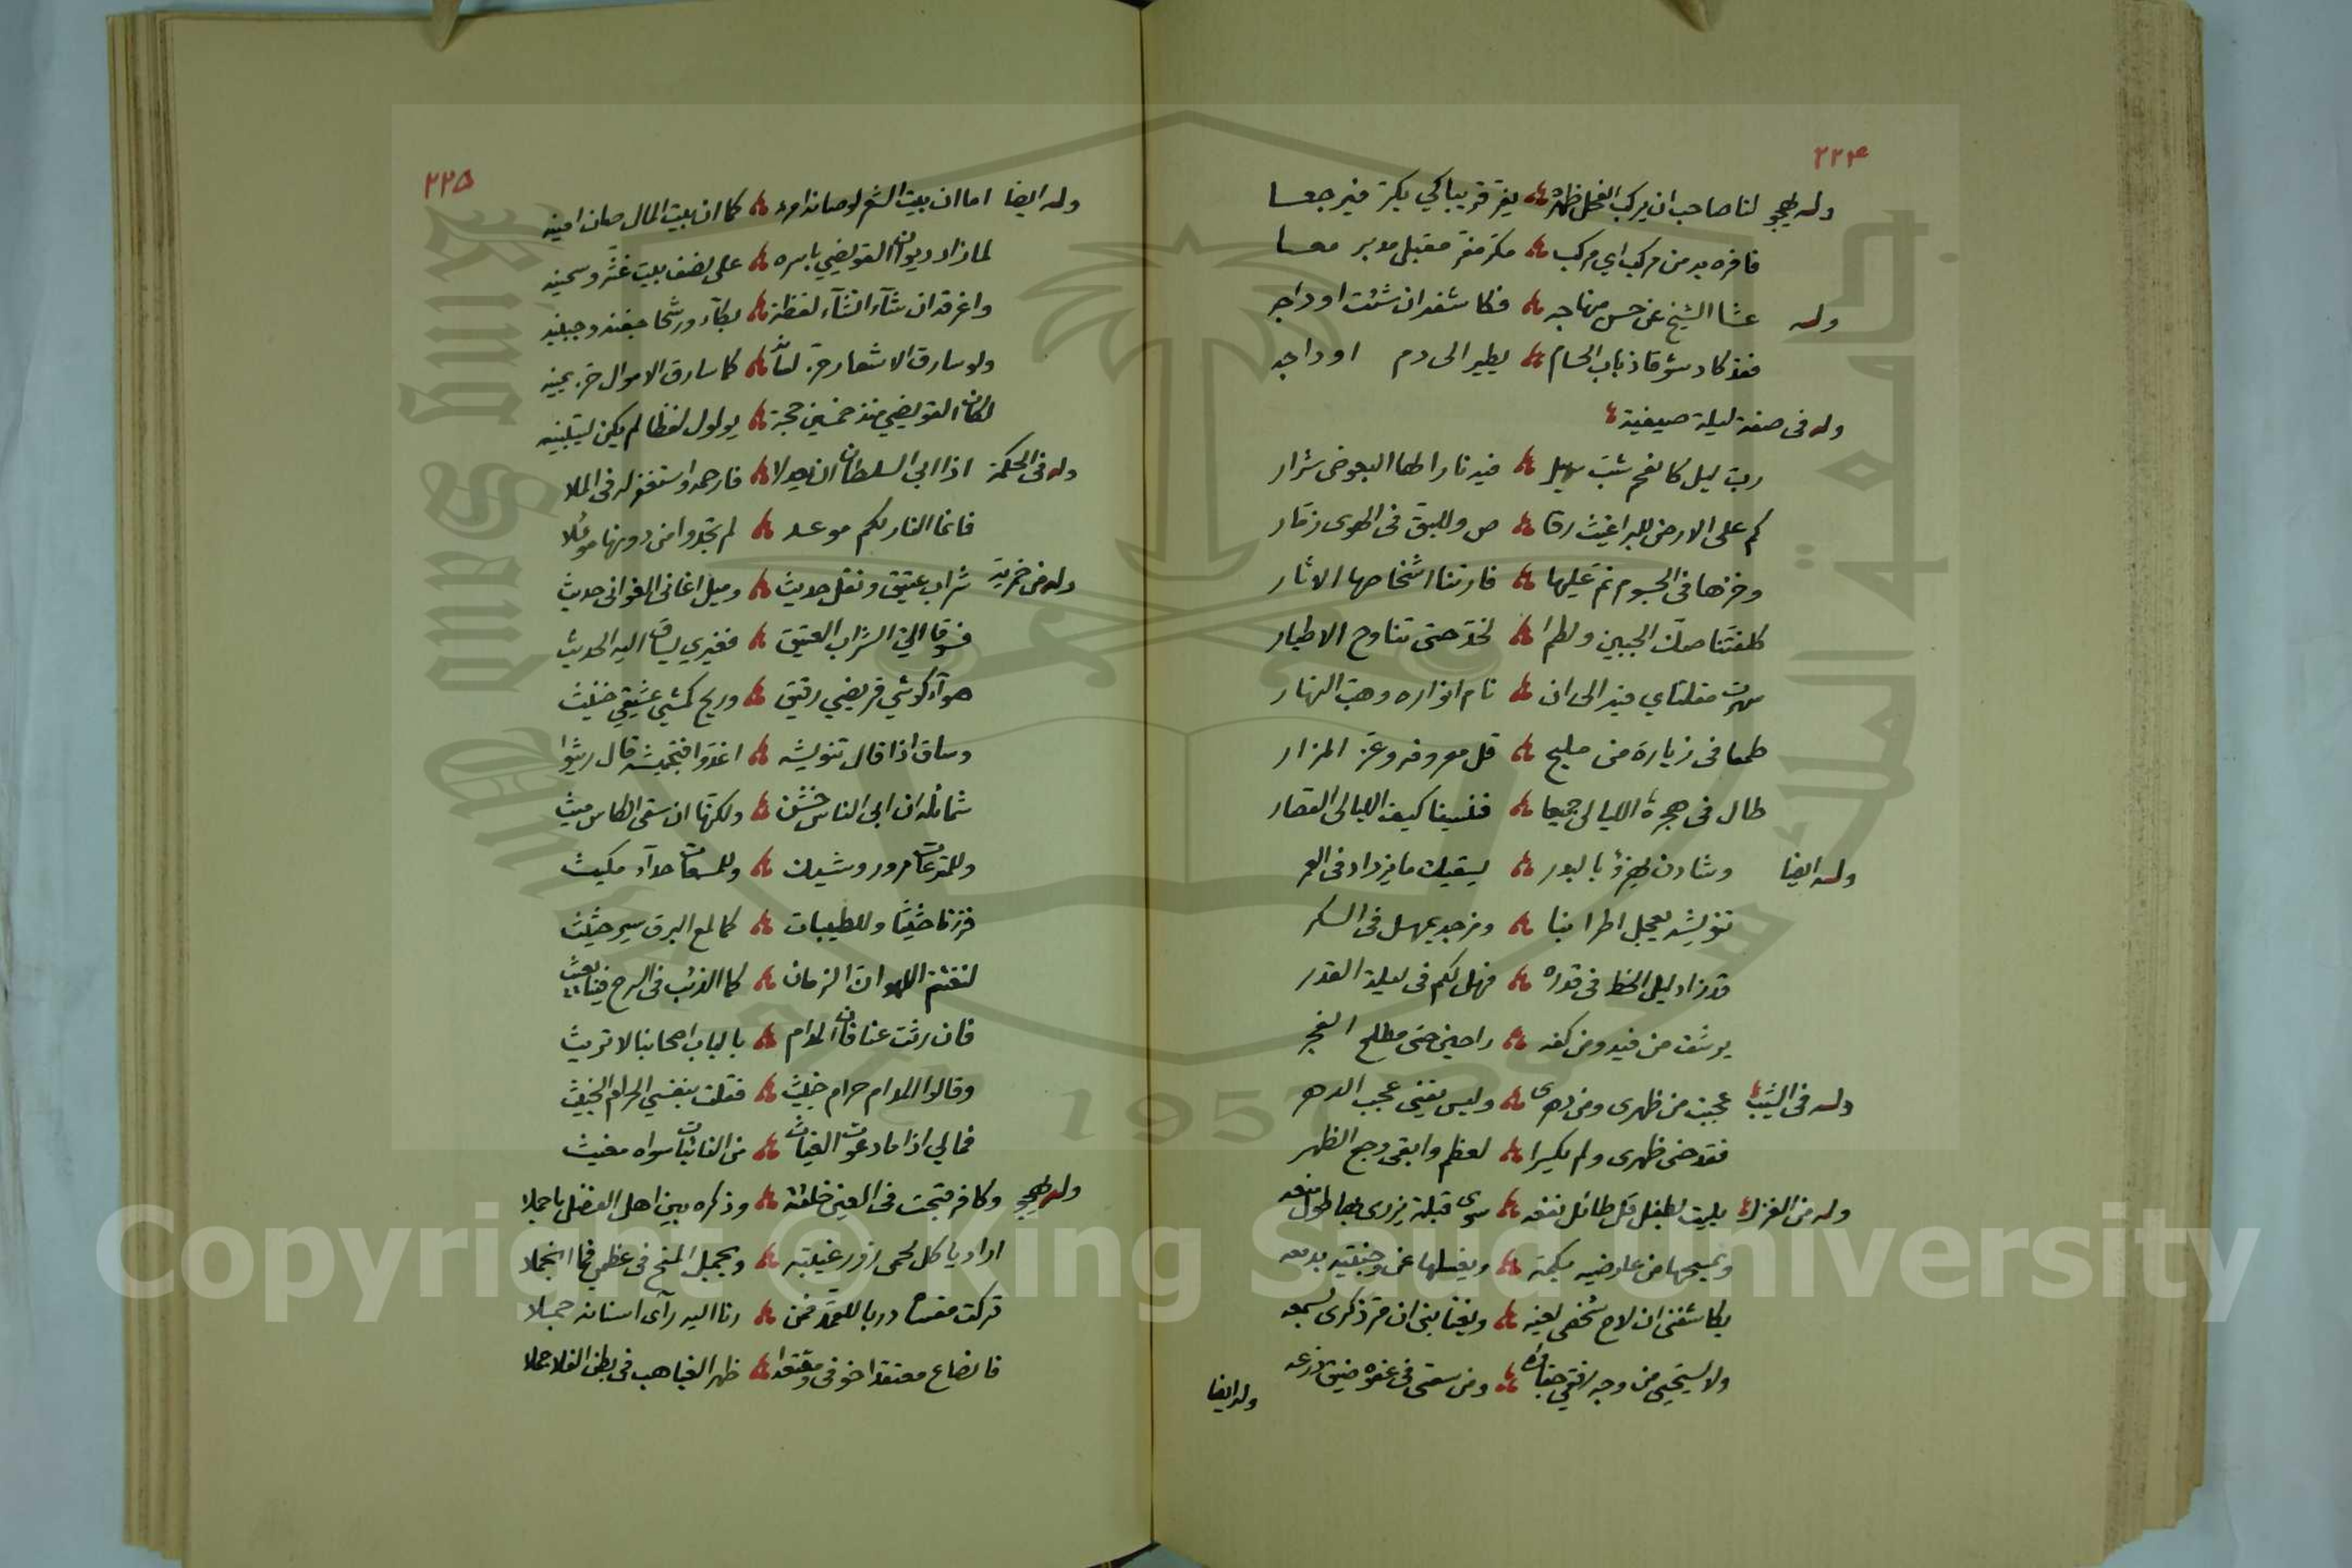 ٢٢٤
وله يهجو لنا صاحب ان يركب الفحل ظهره يفر قريبا كي يكر فيرجعا
فافره به من مركب اي مركب مكر مفر مقبل مدبر معا
وله عشا الشيخ عن حسن منهاجه فكاشفه ان شئت اوداجه
فقد كاد شوقا ذباب الحسام يطير الى دم اوداجه
وله في صفة ليلة صيفية
رب ليل كالفحم شب فيه نارا لها البعوض شرار
كم على الارض للبراغيث رقا ص وللبق في الهوى زمّار
وخزها في الجسوم نمّ عليها فارتنا اشخاصها الاثار
كلفتنا صكّ الجبين ولطم ا لخدّ حتى تناوح الاطيار
سهرت مقلتاي فيه الى ان نام انواره وهبّ النهار
طمعا في زيارة من مليح قل معروفه وعز المزار
طال في هجره الليالي جميعا فنسينا كيف الليالي القصار
وله ايضا وشادن يهزؤ بالبدر يسقيك ما يزداد في العمر
يعجل اطرابنا ومزجه يمهل في السكر
قد زاد ليل الخط في قدره فهل لكم في ليلة القدر
يرشف من فيه ومن كفه راحين حتى مطلع الفجر
وله في الشيب عجبت من ظهري ومن دهري وليس يفنى عجب الدهر
فقد حنى ظهري ولم يكسرا لعظم وابقى وجع الظهر
وله من الغزل بليت بطفل قل طائل نفعه سوى قبلة يزري بها طول منعه
ويمسحها من عارضيه بكمه ويغسلها عن وجنتيه بدمعه
يكاشفني ان لاح شخصي لعينه ويغتابني ان مرّ ذكري بسمعه
ولا يستحيي من وجه رقّي ومن سعتي في عفوه ضيق ذرعه
وله ايضا
٢٢٥
وله ايضا اما ان بيت الشعر لو صانه امرء كما ان بيت المال صان امينه
لما زاد ديوان القويضي باسره على نصف بيت غثّه وسمينه
واغرقه ان شآء انشآء لفظة بكآء ورشحا جفنه وجبينه
ولو سارق الاشعار حزّ لسانه كما سارق الاموال حزّ يمينه
لكان القويضي منذ خمسين حجة يولول لفظا لم يكن ليبينه
وله في الحكمة اذا ابى السلطان ان يعدلا فارحمه واستغفر له في الملا
فانما النار لكم موعد لم تجدوا من دونها موئلا
وله من خمرية شراب عتيق ونقل حديث وميل اغاني الغواني حديث
فسوقا اليّ الشراب العتيق فغيري يساق اليه الحديث
هوآء كوشي قريضي رقيق وريح كمشي عشيقي خنيث
وساق اذا قال اغدوا قال ريثوا
شمائله ان ابى الناس خشن ولكنها ان سقى الكاس ميث
وللمترعات مرور وشيك وللمسمعات حدآء مكيث
فزرنا حثيثا وللطيبات كما لمع البرق سير حثيث
لنغتنم اللهو ان الزمان كما الذئب في السرح فينا يعيث
فان رثت عنا فان المدام بالباب اصحابنا لا تريث
وقالوا المدام حرام خبيث فقلت بنفسي الحرام الخبيث
فمالي اذا ما دعوت الغياث من النائبات سواه مغيث
وله يهجو وكافر قبحت في العين خلقته وذكره بين اهل الفضل ما جملا
اراد يا كل لحمي زور غيبته ويجمل المخ في عظمي فما انجملا
رنا اليه رآى اسنانه جبلا
فانصاع معتقدا خوفي ظهر الغياهب في بطن الفلا جملا
Copyright © King Saud University
King Saud University
1957